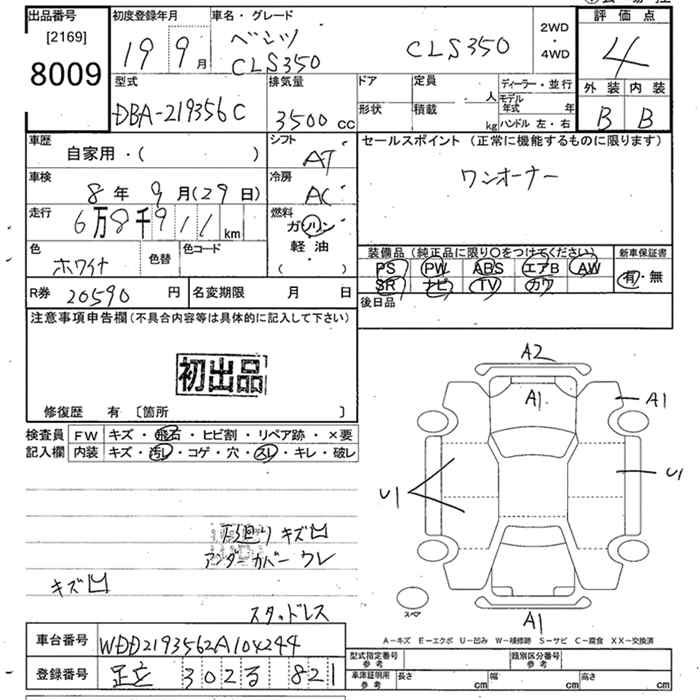 出品番号
[2169]
8009
初度登録年月
19 9月
車名・グレード
ベンツ
CLS350 CLS350
2WD
・
4WD
評価点
4
外装 内装
B B
型式
DBA-219356C
排気量
3500 CC
ドア
形状
定員
人
積載
kg
ディーラー・並行
モデル年式 年
ハンドル 左・右
車歴
自家用・( )
シフト
AT
セールスポイント (正常に機能するものに限ります)
ワンオーナー
車検
8年 9月(29日)
冷房
AC
走行
6万8千911km
燃料
ガソリン
軽・油
( )
色
ホワイト
色替
色コード
装備品 (純正品に限り○をつけてください)
PS PW ABS エアB AW
SR ナビ TV カワ
新車保証書
有・無
R券 20590 円
名変期限 月 日
後日品
注意事項申告欄(不具合内容等は具体的に記入して下さい)
初出品
修復歴 有 〔箇所 〕
検査員 FW キズ・飛石・ヒビ割・リペア跡・×要
記入欄 内装 キズ・汚レ・コゲ・穴・スレ・キレ・破レ
A2
A1
A1
U1
U1
A1
スペア
下廻り キズ凹
アンダーカバー ワレ
キズ凹
スタッドレス
A-キズ E-エクボ U-凹み W-補修跡 S-サビ C-腐食 XX-交換済
車台番号 WDD2193562A10X244
登録番号 足立 302 る 821
型式指定番号 参考
類別区分番号 参考
車庫証明用 参考 長さ cm 幅 cm 高さ cm